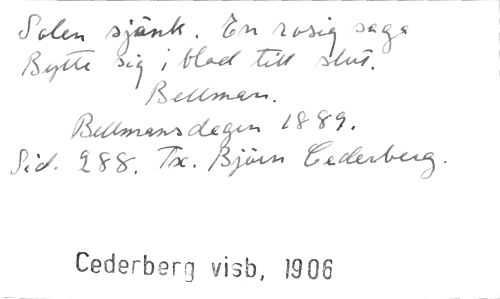 Solen sjönk. En rosig saga
Bytte sig i blod till slut.
Bellman.
Bellmansdagen 1889.
Sid. 288. Tx. Björn Cederberg.
Cederberg visb, 1906